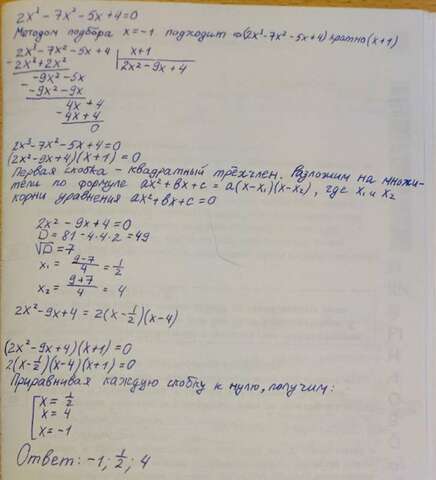 2x³ - 7x² - 5x + 4 = 0
Методом подбора x = -1 подходит ⇒ (2x³ - 7x² - 5x + 4) кратно (x+1)
2x³ - 7x² - 5x + 4 | x+1
- 2x³ + 2x² | 2x² - 9x + 4
-9x² - 5x
- -9x² - 9x
4x + 4
- 4x + 4
0
2x³ - 7x² - 5x + 4 = 0
(2x² - 9x + 4)(x+1) = 0
Первая скобка - квадратный трёхчлен. Разложим на множи-
тели по формуле ax² + bx + c = a(x-x₁)(x-x₂), где x₁ и x₂
корни уравнения ax² + bx + c = 0
2x² - 9x + 4 = 0
D = 81 - 4·4·2 = 49
√D = 7
x₁ = (9-7)/4 = 1/2
x₂ = (9+7)/4 = 4
2x² - 9x + 4 = 2(x - 1/2)(x-4)
(2x² - 9x + 4)(x+1) = 0
2(x - 1/2)(x-4)(x+1) = 0
Приравнивая каждую скобку к нулю, получим:
[ x = 1/2
x = 4
x = -1
Ответ: -1; 1/2; 4